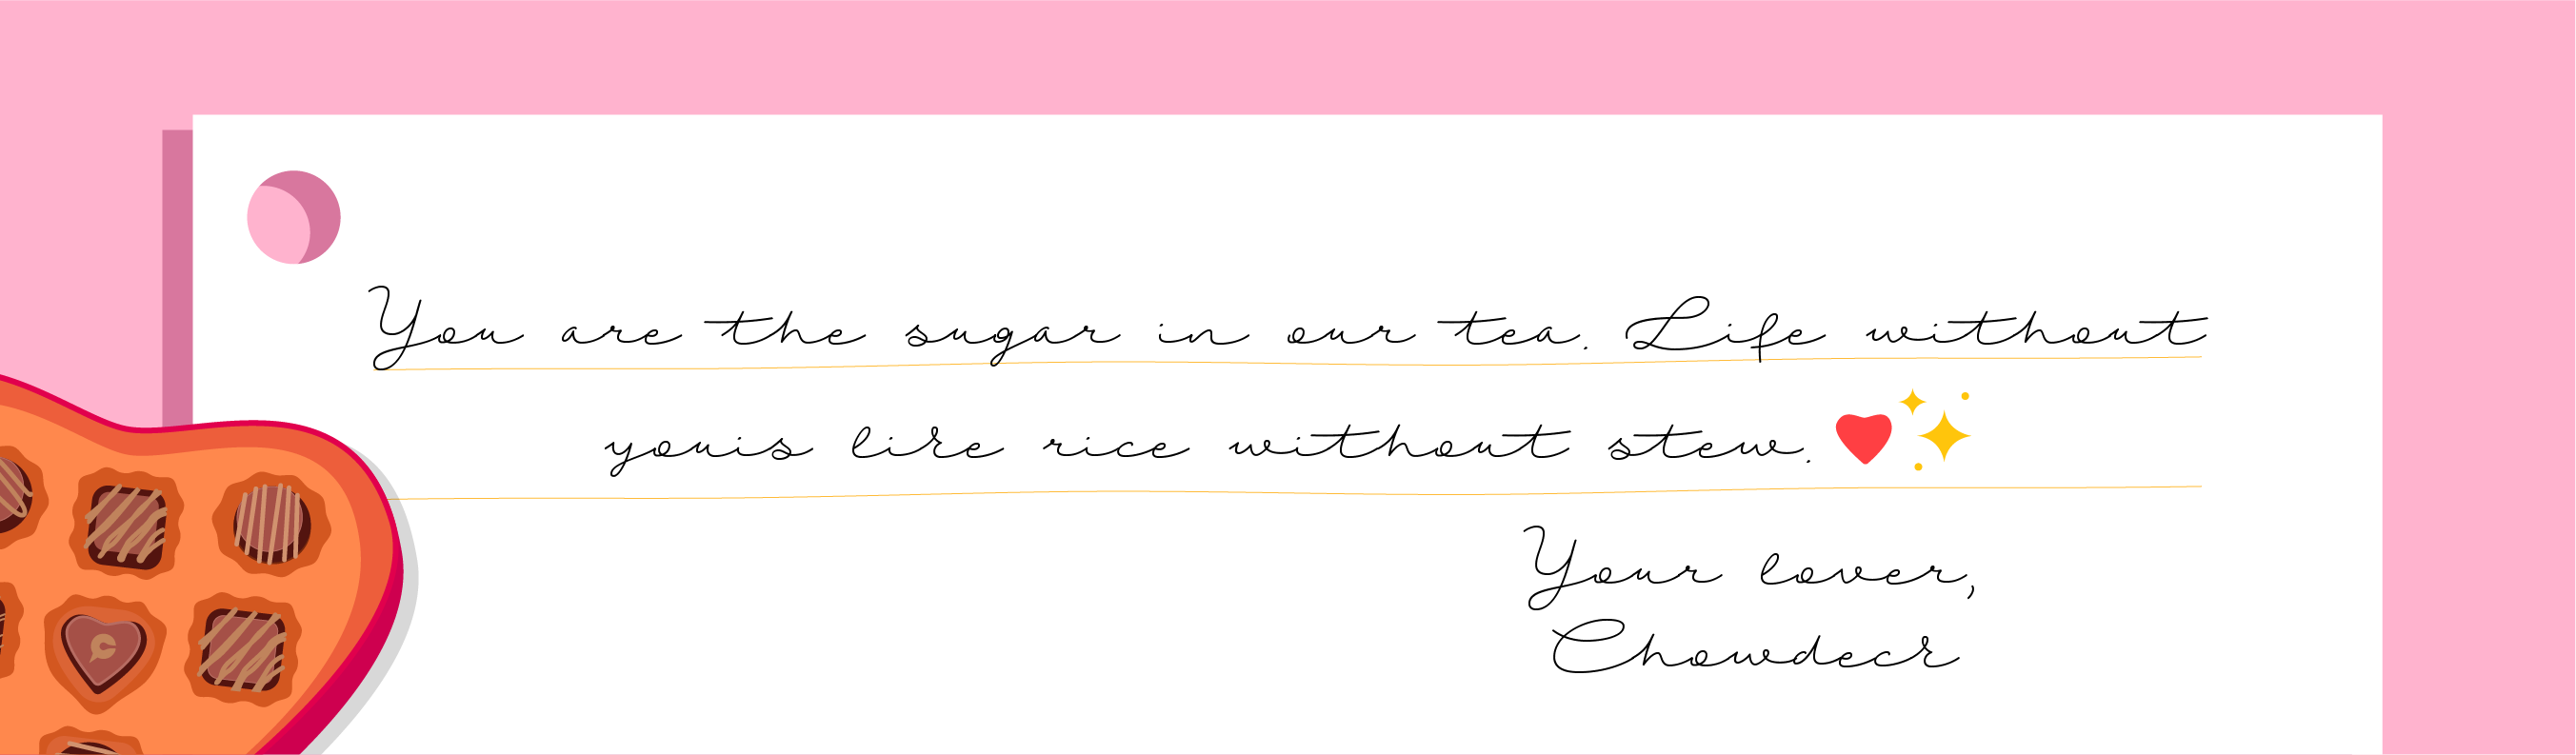 You are the sugar in our tea. Life without
youis like rice without stew. ❤️✨
Your lover,
Chowdeck